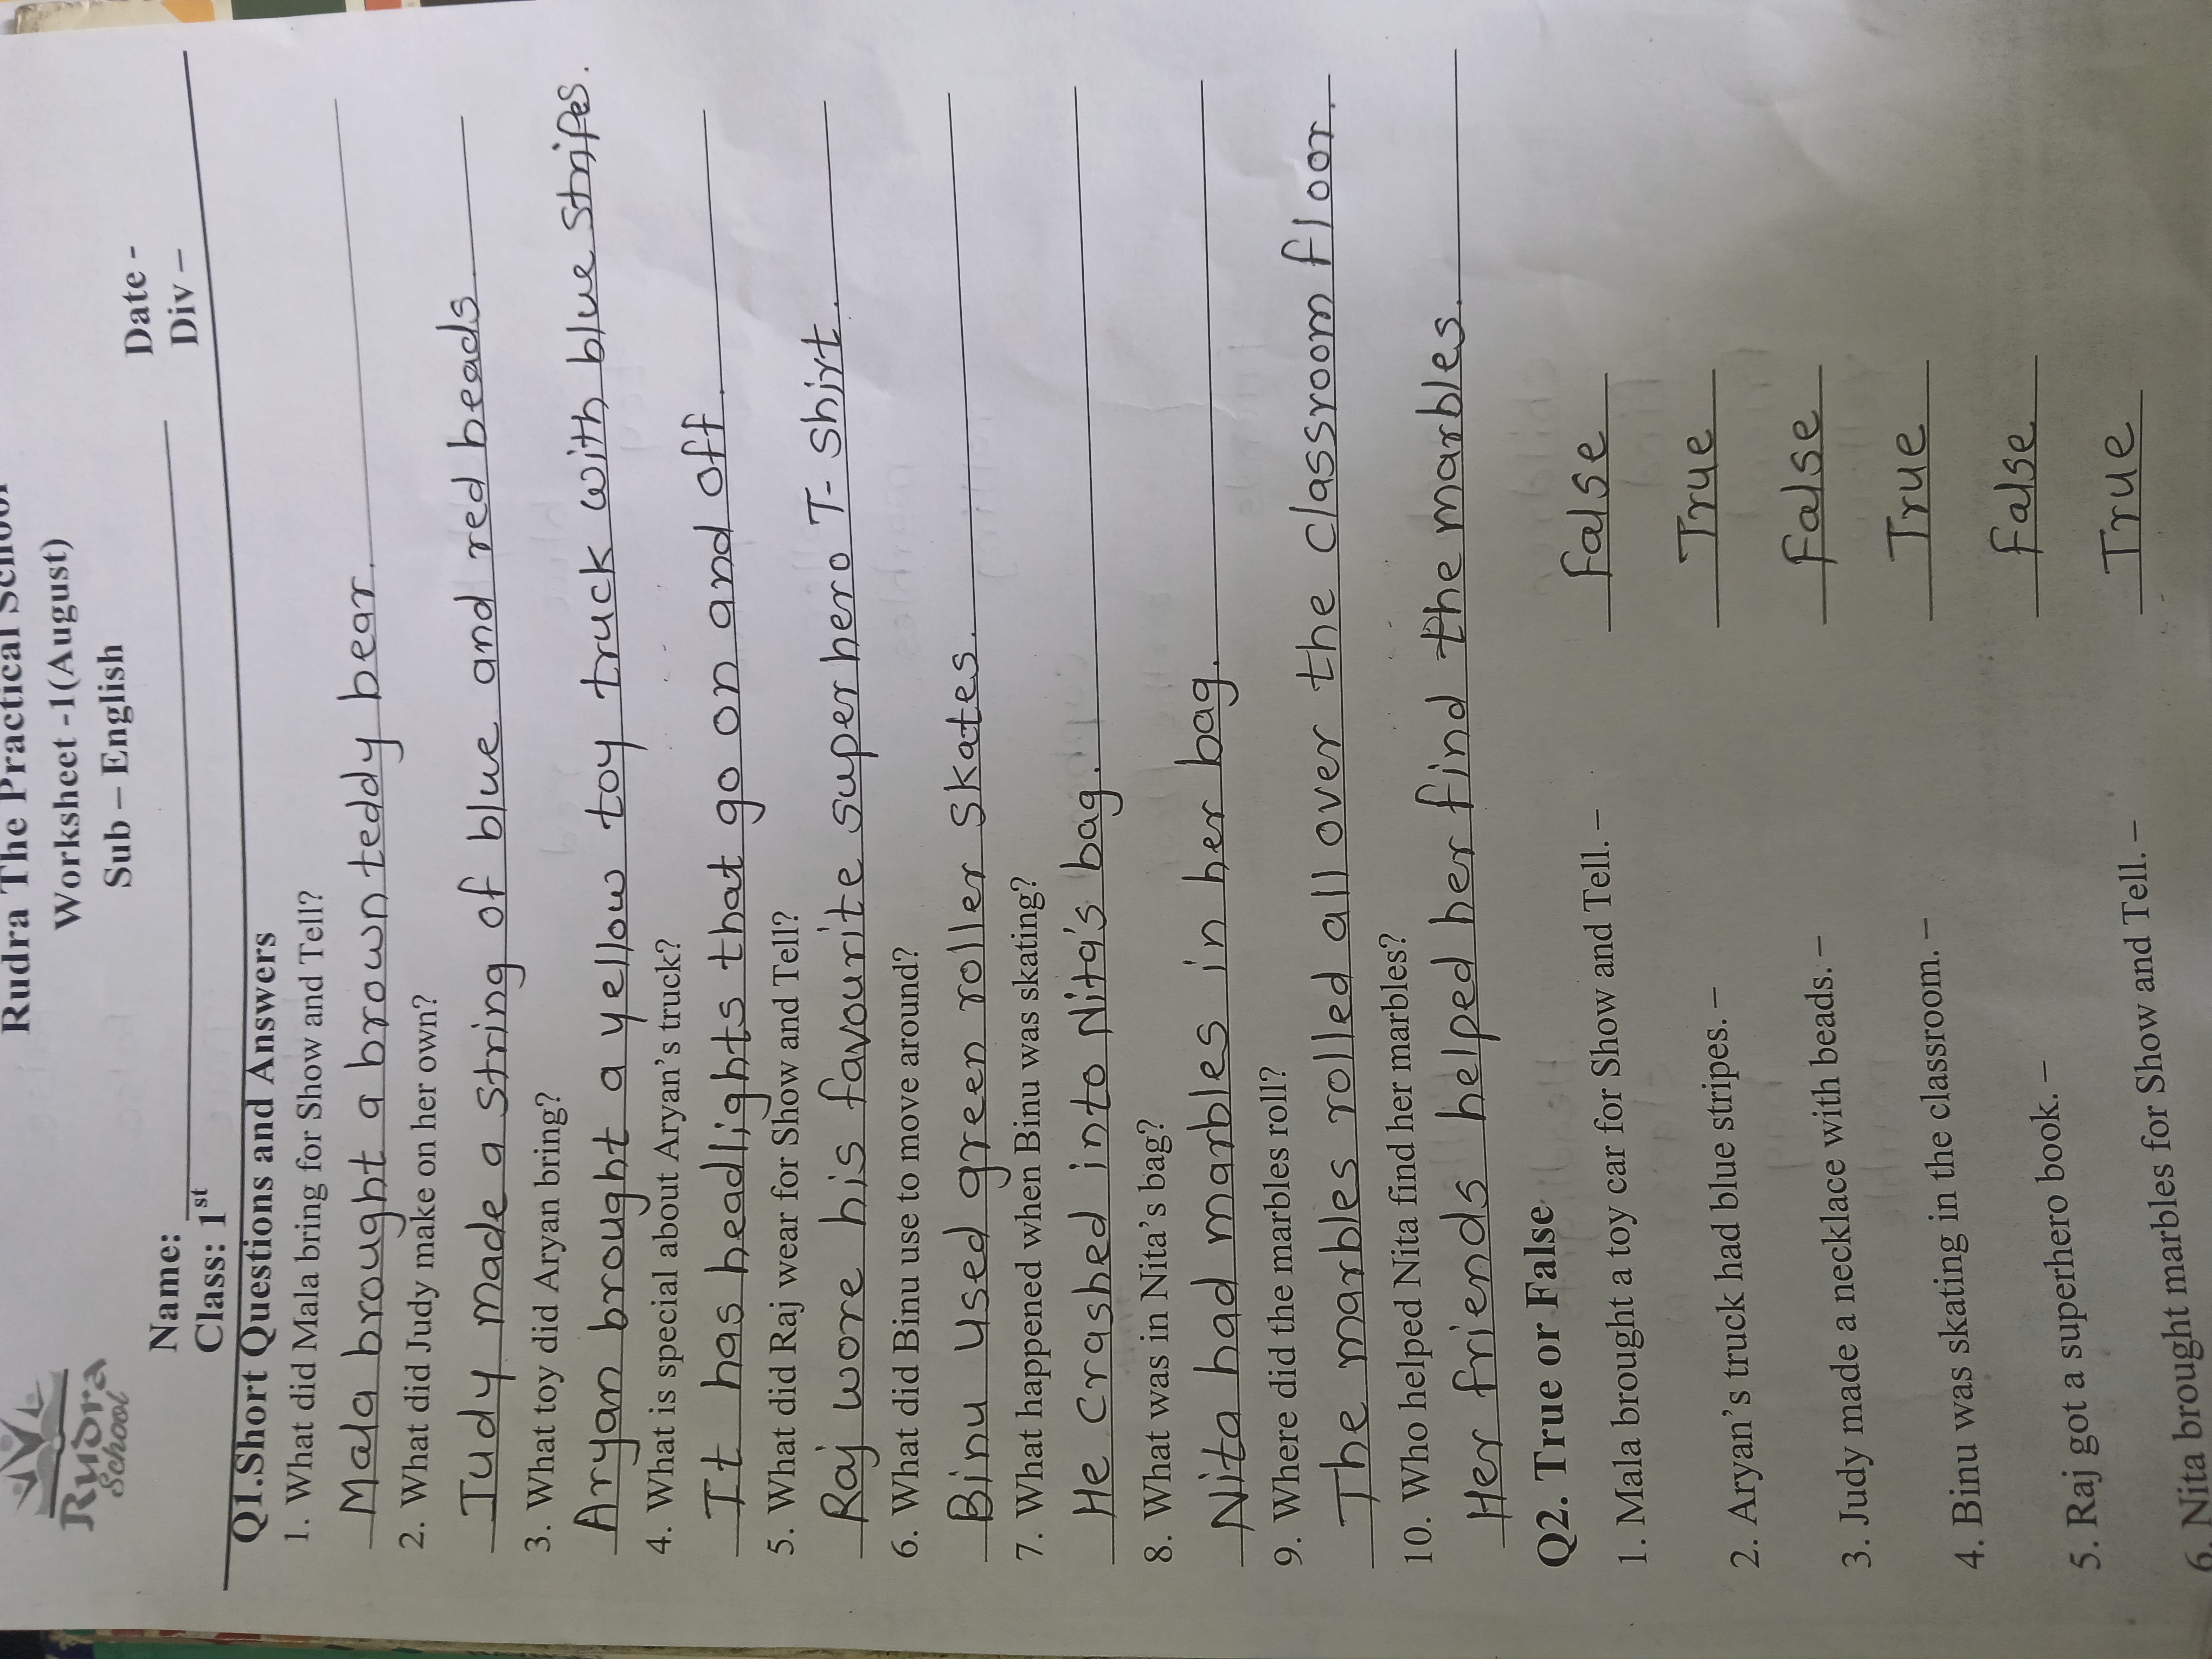 Rudra School
Rudra The Practical School
Worksheet -1(August)
Sub – English
Name: Date -
Class: 1st Div –
Q1.Short Questions and Answers
1. What did Mala bring for Show and Tell?
Mala brought a brown teddy bear.
2. What did Judy make on her own?
Judy made a string of blue and red beads
3. What toy did Aryan bring?
Aryan brought a yellow toy truck with blue stripes.
4. What is special about Aryan's truck?
It has headlights that go on and off.
5. What did Raj wear for Show and Tell?
Raj wore his favourite superhero T-shirt.
6. What did Binu use to move around?
Binu used green roller skates.
7. What happened when Binu was skating?
He crashed into Nita's bag.
8. What was in Nita's bag?
Nita had marbles in her bag.
9. Where did the marbles roll?
The marbles rolled all over the classroom floor.
10. Who helped Nita find her marbles?
Her friends helped her find the marbles.
Q2. True or False
1. Mala brought a toy car for Show and Tell. – False
2. Aryan's truck had blue stripes. – True
3. Judy made a necklace with beads. – False
4. Binu was skating in the classroom. – True
5. Raj got a superhero book. – False
6. Nita brought marbles for Show and Tell. – True